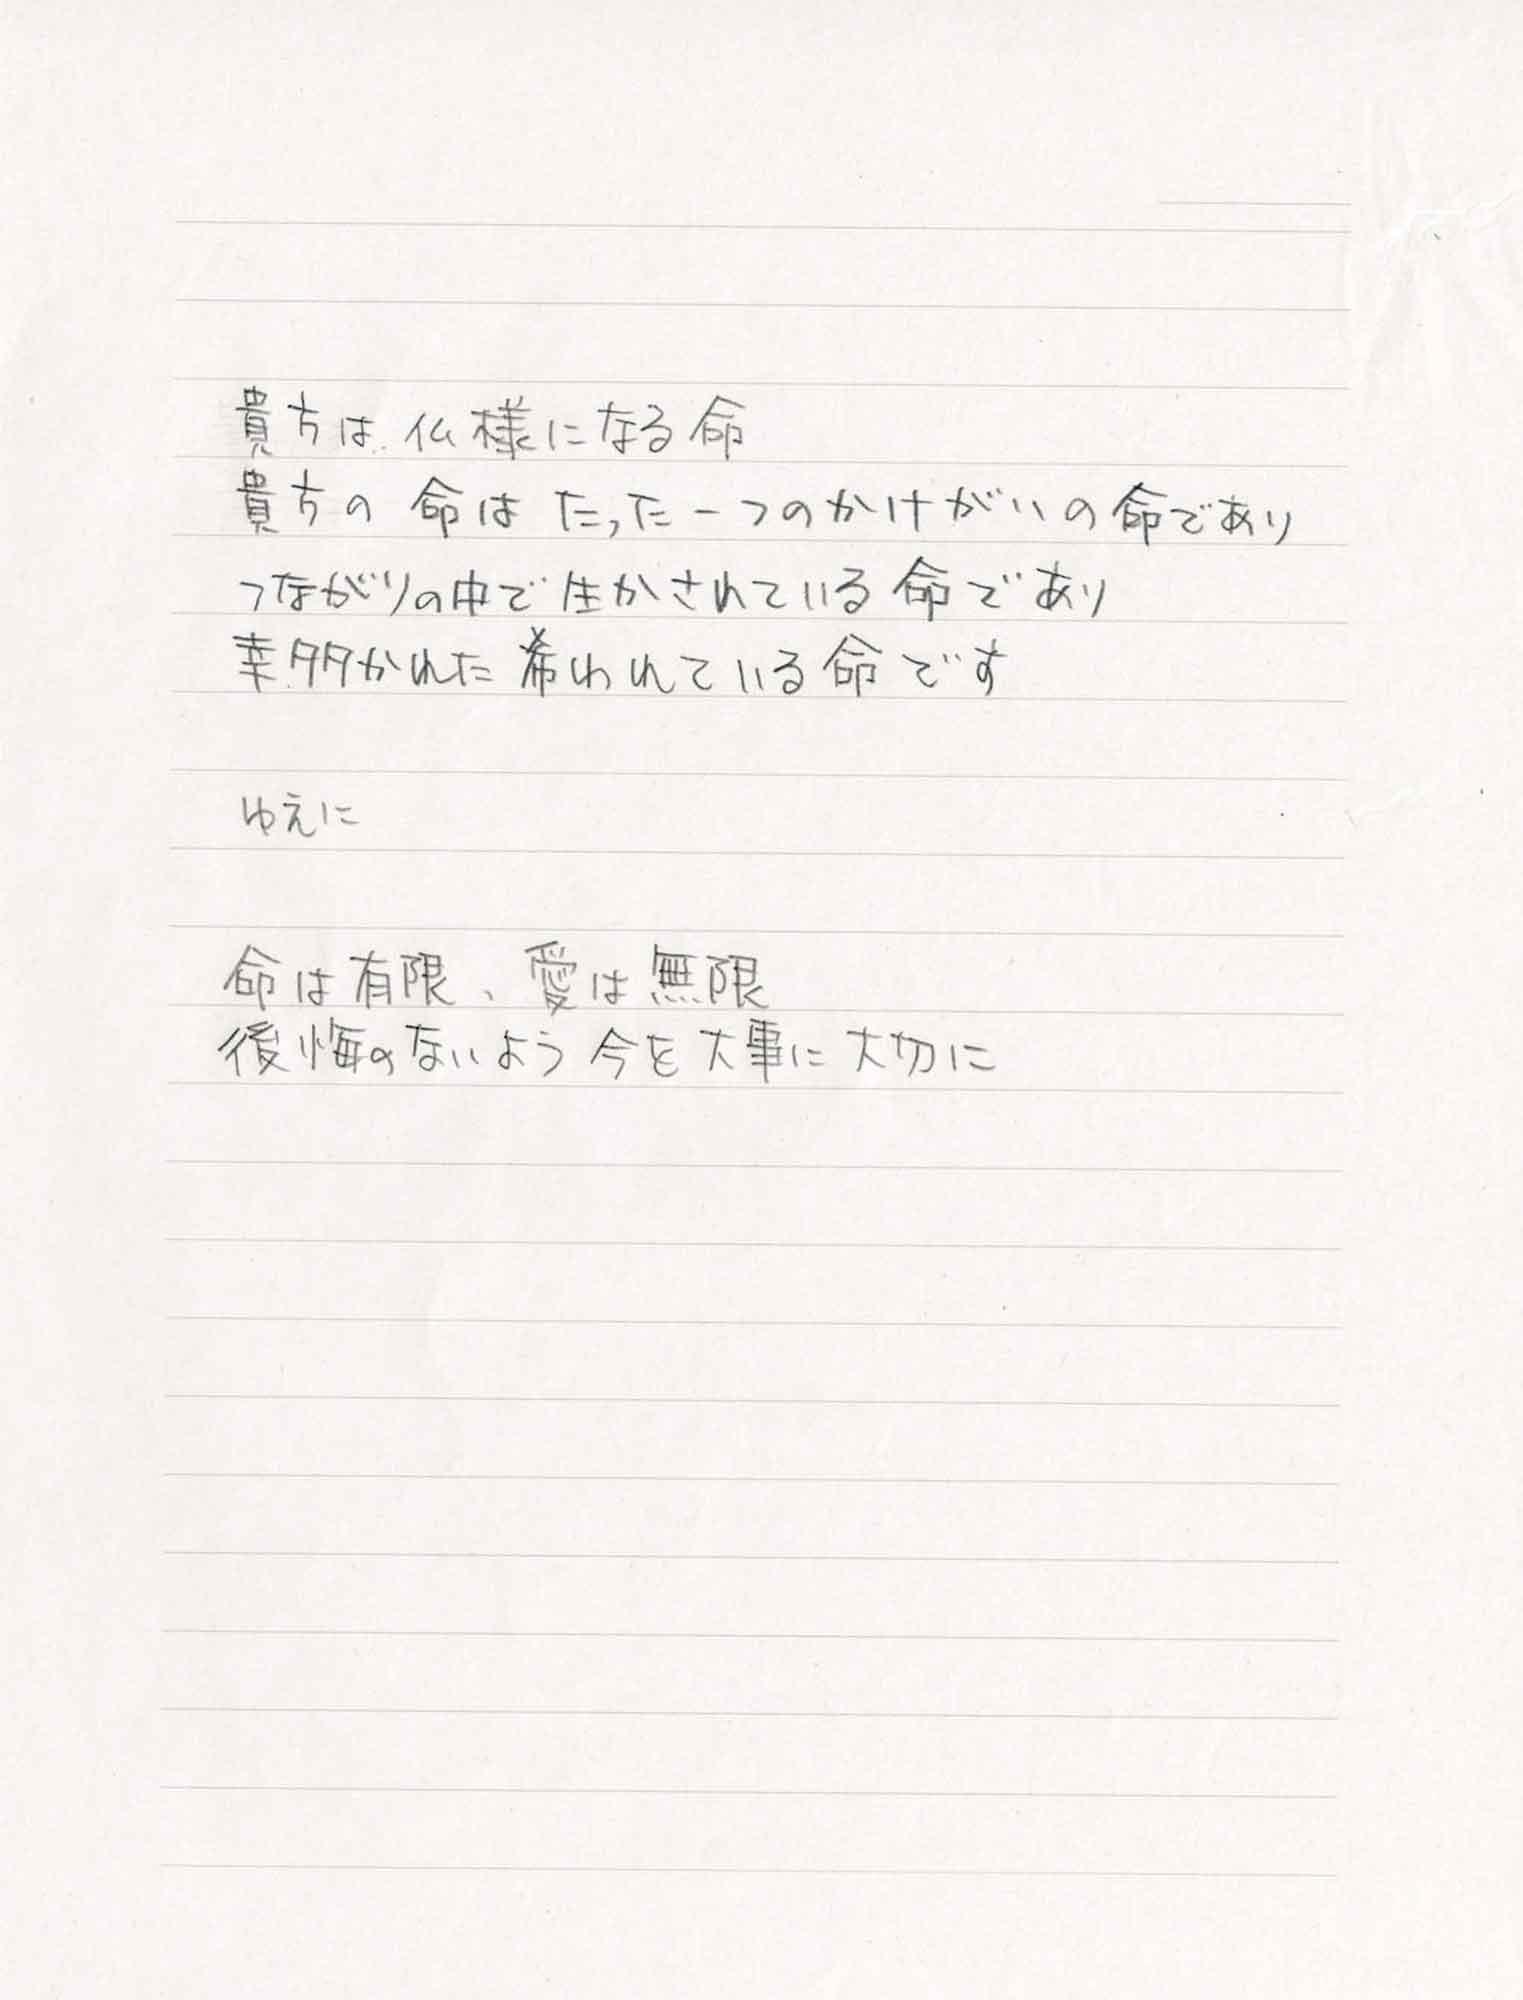 貴方は仏様になる命
貴方の命はたった一つのかけがいの命であり
つながりの中で生かされている命であり
幸多かれた希われている命です
ゆえに
命は有限、愛は無限
後悔のないよう今を大事に大切に